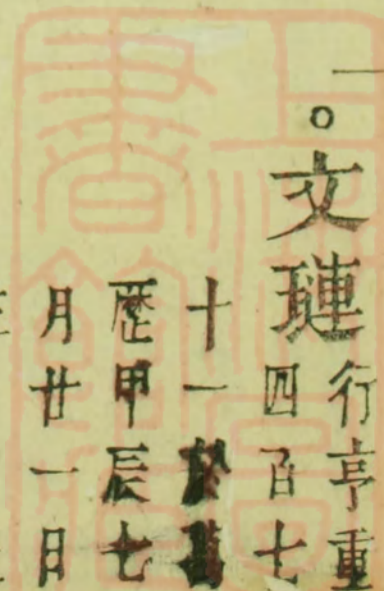 文璉
行亨重
四百七
十一於萬
歷甲辰七
月廿一日